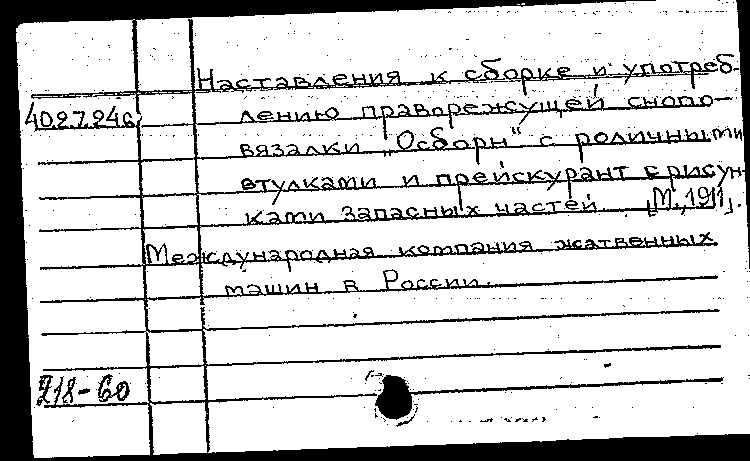 Наставления к сборке и употреб-
40.27.246
лению праворежущей снопо-
вязалки „Осборн" с роличными
втулками и прейскурант с рисун-
ками запасных частей. [М., 1911].
Международная компания жатвенных
машин в России.
218-60